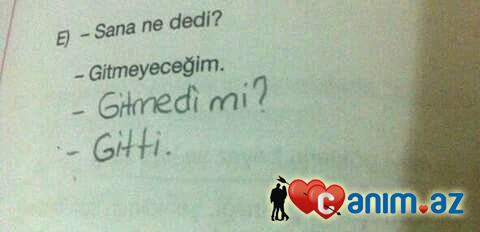 E) – Sana ne dedi?
– Gitmeyeceğim.
– Gitmedi mi?
– Gitti.
Canım.az